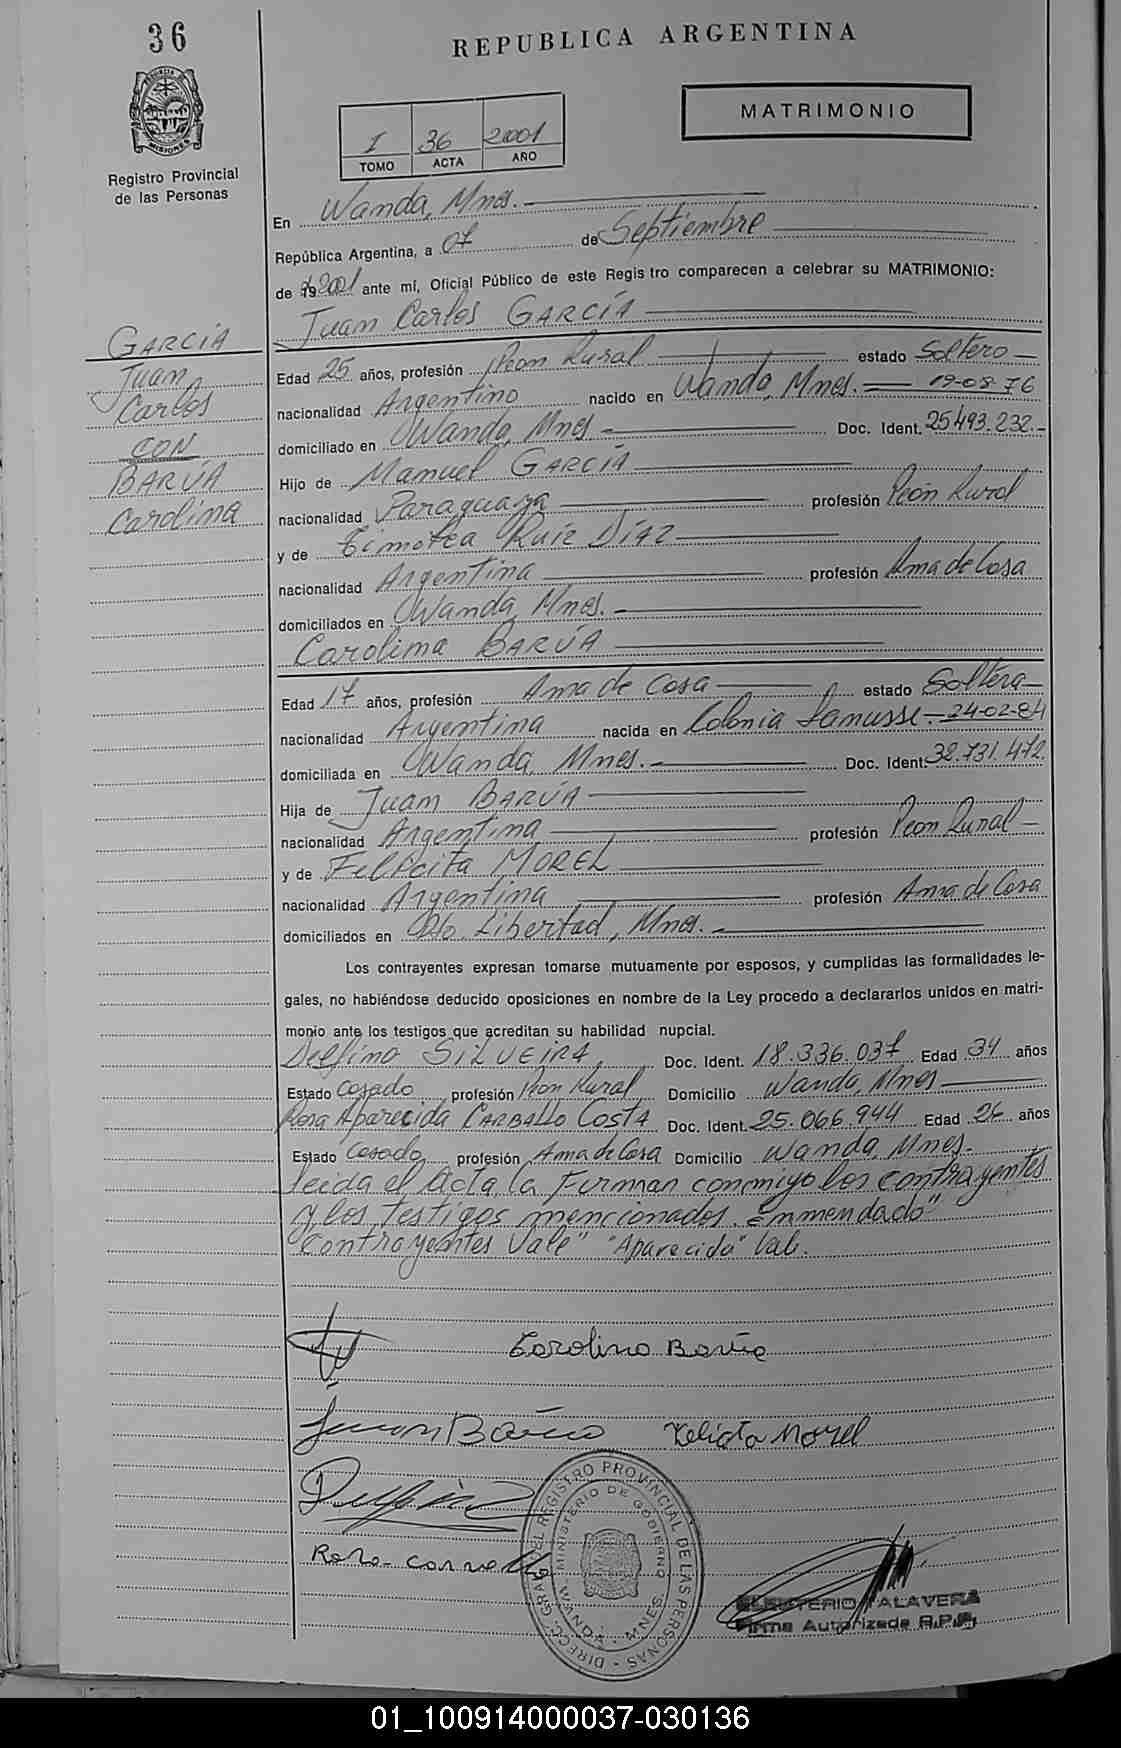 36
REPUBLICA ARGENTINA
PROVINCIA DE
MISIONES
Registro Provincial
de las Personas
I 36 2001
TOMO ACTA AÑO
MATRIMONIO
En Wanda, Mnes.
República Argentina, a 07 de Septiembre
de 2001 ante mí, Oficial Público de este Registro comparecen a celebrar su MATRIMONIO:
Juan Carlos GARCÍA
GARCÍA
Juan
Carlos
CON
BARÚA
Carolina
Edad 25 años, profesión Peon Rural estado Soltero
nacionalidad Argentino nacido en Wanda, Mnes. 19-08-76
domiciliado en Wanda, Mnes Doc. Ident. 25.493.232.-
Hijo de Manuel GARCÍA
nacionalidad Paraguaya profesión Peón Rural
y de Timotea Ruiz Díaz
nacionalidad Argentina profesión Ama de Casa
domiciliados en Wanda, Mnes.
Carolina BARÚA
Edad 17 años, profesión Ama de Casa estado Soltera
nacionalidad Argentina nacida en Colonia Lanusse.- 24-02-84
domiciliada en Wanda, Mnes. Doc. Ident. 32.731.472.
Hija de Juan BARÚA
nacionalidad Argentina profesión Peon Rural
y de Felicita MOREL
nacionalidad Argentina profesión Ama de Casa
domiciliados en Pto. Libertad, Mnes.
Los contrayentes expresan tomarse mutuamente por esposos, y cumplidas las formalidades le-
gales, no habiéndose deducido oposiciones en nombre de la Ley procedo a declararlos unidos en matri-
monio ante los testigos que acreditan su habilidad nupcial.
Delfino SILVEIRA Doc. Ident. 18.336.037 Edad 34 años
Estado Casado profesión Peon Rural Domicilio Wanda, Mnes
Rosa Aparecida CARBALLO COSTA Doc. Ident. 25.066.944 Edad 26 años
Estado Casado profesión Ama de Casa Domicilio Wanda, Mnes.
Leida el Acta, la Firman conmigo los contrayentes
y los testigos mencionados. Enmendado"
contrayentes Vale" "Aparecida" Vale.
Carolina Barúa
Juan Barúa Felicita Morel
Rosa Carvallo
DIRECC. GRAL. DEL REGISTRO PROVINCIAL DE LAS PERSONAS
MINISTERIO DE GOBIERNO
WANDA - MNES
ELEUTERIO TALAVERA
Firma Autorizada R.P.P.
01_100914000037-030136